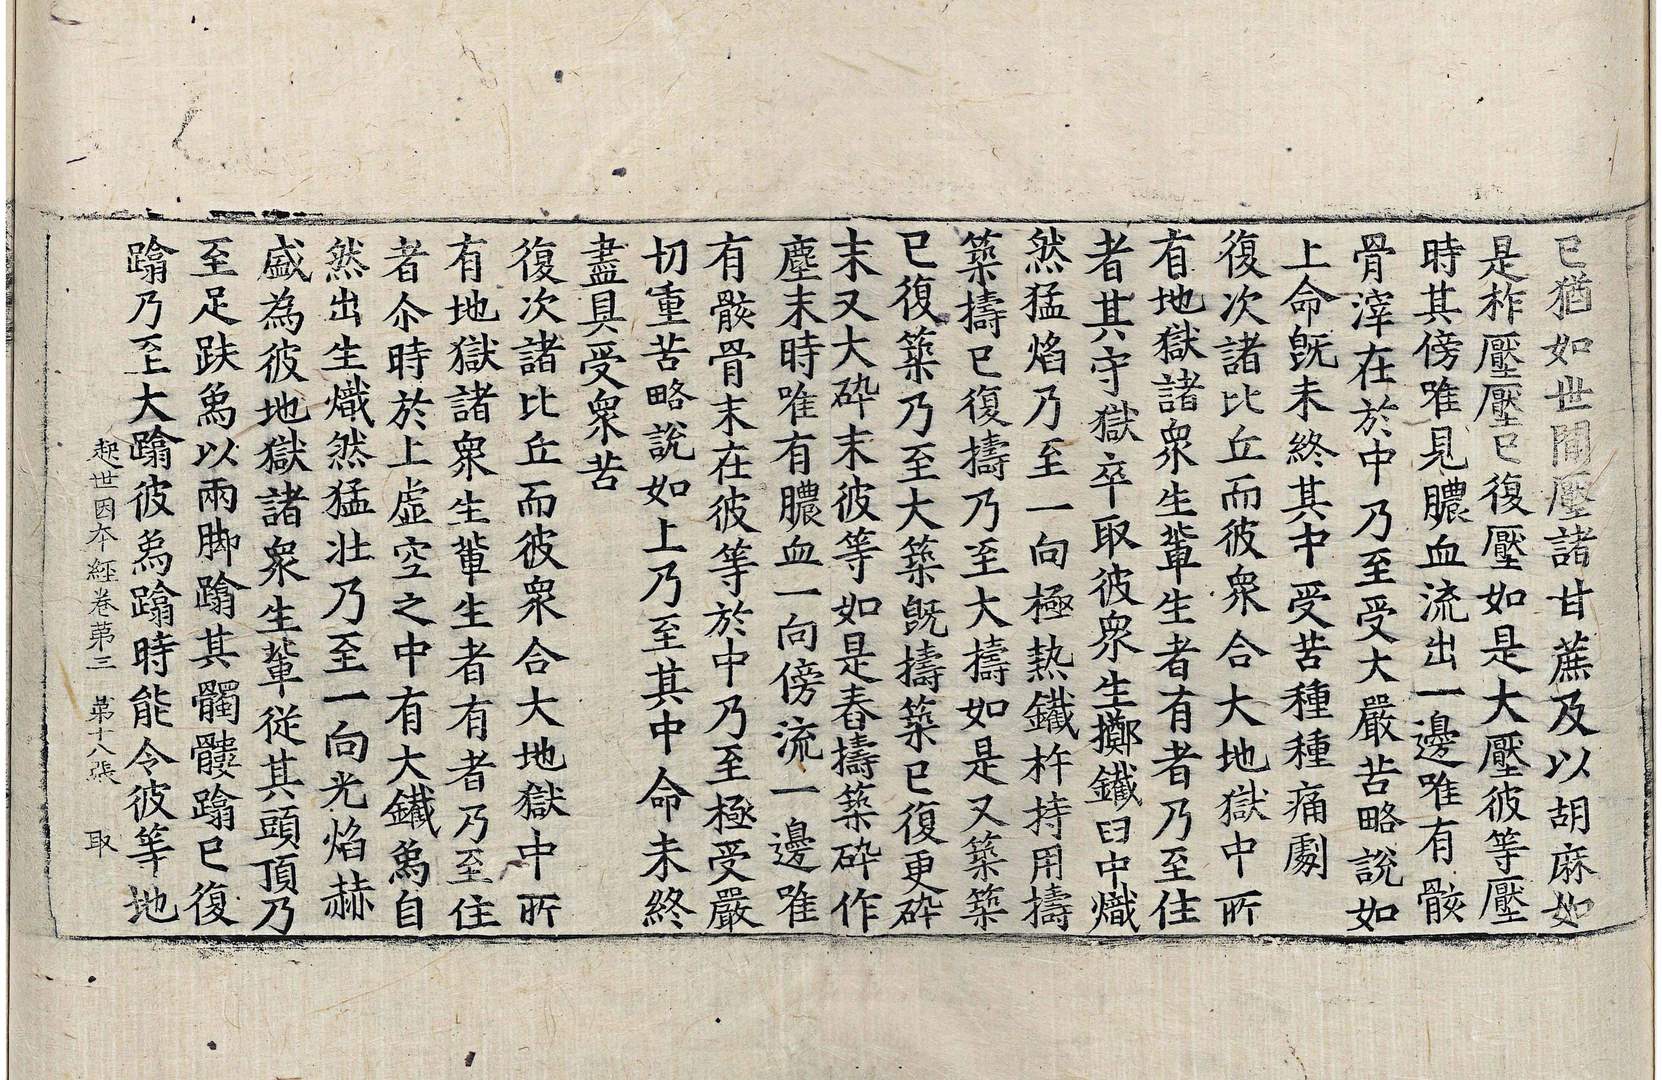 已猶如世間壓諸甘蔗及以胡麻如
是柞壓壓已復壓如是大壓彼等壓
時其傍唯見膿血流出一邊唯有骸
骨滓在於中乃至受大嚴苦略說如
上命旣未終其中受苦種種痛劇
復次諸比丘而彼衆合大地獄中所
有地獄諸衆生輩生者有者乃至住
者其守獄卒取彼衆生擲鐵臼中熾
然猛焰乃至一向極熱鐵杵持用擣
築擣已復擣乃至大擣如是又築築
已復築乃至大築旣擣築已復更碎
末又大碎末彼等如是舂擣築碎作
塵末時唯有膿血一向傍流一邊唯
有骸骨末在彼等於中乃至極受嚴
切重苦略說如上乃至其中命未終
盡具受衆苦
復次諸比丘而彼衆合大地獄中所
有地獄諸衆生輩生者有者乃至住
者尒時於上虛空之中有大鐵爲自
然出生熾然猛壯乃至一向光焰赫
盛為彼地獄諸衆生輩從其頭頂乃
至足趺爲以兩脚蹹其髑髏蹹已復
蹹乃至大蹹彼爲蹹時能令彼等地
起世因夲經卷苐三　苐十八張　取